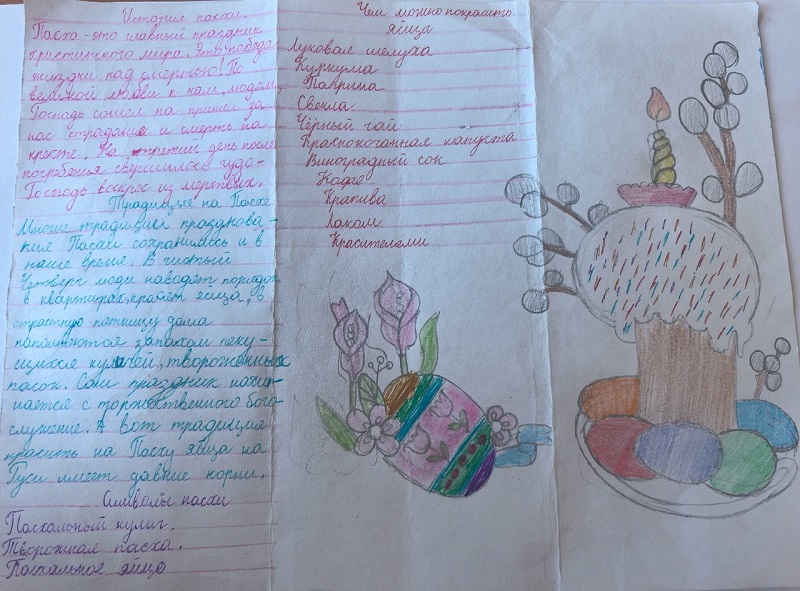 История пасхи.
Пасха - это главный праздник
христианского мира. Это победа
жизни над смертью! По
великой любви к нам, людям,
Господь сошел на принял за
нас страдания и смерть на
кресте. На третий день после
погребения свершилось чудо-
Господь воскрес из мертвых.
Традиции на Пасхе
Многие традиции празднова-
ния Пасхи сохранились и в
наше время. В чистый
Четверг люди наводят порядок
в квартирах, красят яйца, в
страстную пятницу дома
наполняются запахом пеку-
щихся куличей, творожных
пасок. Сам праздник начи-
нается с торжественного бого-
служения. А вот традиция
красить на Пасху яйца на
Руси имеет давние корни.
Символы пасхи
Пасхальный кулич.
Творожная пасха.
Пасхальное яйцо
Чем можно покрасить
яйца
Луковая шелуха
Куркума
Паприка
Свекла
Чёрный чай
Краснокочанная капуста
Виноградный сок
Кофе
Крапива
Лаком
Красителями